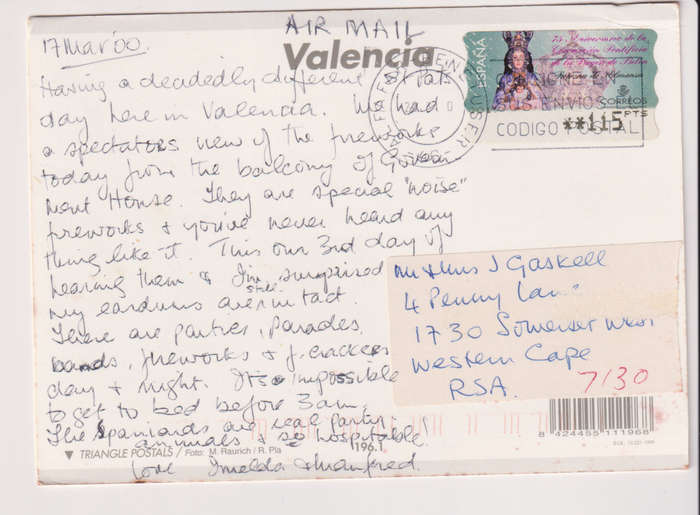 AIR MAIL
17 Mar '00.
Valencia
Having a decidedly different St Pats
day here in Valencia. We had
a spectators view of the fireworks
today from the balcony of Govern
ment House. They are special "noise"
fireworks & you've never heard any
thing like it. This our 3rd day of
hearing them & I'm surprised
still
my eardrums are intact.
There are parties, parades,
bands, fireworks & f. crackers
day & night. It's impossible
to get to bed before 3am.
The Spaniards are real party
animals & so hospitable!
love Imelda & Manfred.
ESPAÑA
75 Aniversario de la
Coronación Pontificia
de la Virgen de
CONSIGNE EN
SUS ENVIOS EL
CODIGO POSTAL
CORREOS
PTS
**115
Mr & Mrs J Gaskell
4 Penny Lane
1730 Somerset West
Western Cape
RSA.
7130
8 424455 111968
▼ TRIANGLE POSTALS / Foto: M. Raurich / R. Pla
196.1